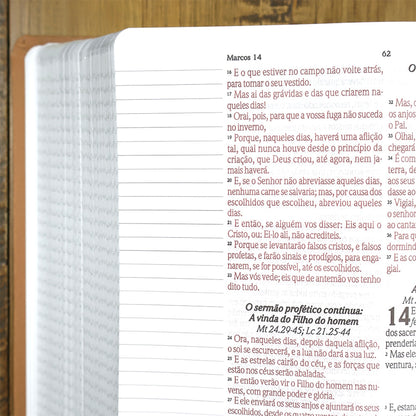 Marcos 14
62
16 E o que estiver no campo não volte atrás,
para tomar o seu vestido.
17 Mas ai das grávidas e das que criarem na-
queles dias!
18 Orai, pois, para que a vossa fuga não suceda
no inverno,
19 Porque, naqueles dias, haverá uma aflição
tal, qual nunca houve desde o princípio da
criação, que Deus criou, até agora, nem ja-
mais haverá.
20 E, se o Senhor não abreviasse aqueles dias,
nenhuma carne se salvaria; mas, por causa dos
escolhidos que escolheu, abreviou aqueles
dias.
21 E então, se alguém vos disser: Eis aqui o
Cristo, ou: Ei-lo ali, não acrediteis.
22 Porque se levantarão falsos cristos, e falsos
profetas, e farão sinais e prodígios, para enga-
narem, se for possível, até os escolhidos.
23 Mas vós vede; eis que de antemão vos tenho
dito tudo.
O sermão profético continua:
A vinda do Filho do homem
Mt 24.29-45; Lc 21.25-44
24 Ora, naqueles dias, depois daquela aflição,
o sol se escurecerá, e a lua não dará a sua luz.
25 E as estrelas cairão do céu, e as forças que
estão nos céus serão abaladas.
26 E então verão vir o Filho do homem nas nu-
vens, com grande poder e glória.
27 E ele enviará os seus anjos e ajuntará os seus
escolhidos, desde os quatro
O
32 Mas,
os anjos
o Pai.
33 Olhai,
chegará
34 É com
terra, de
aos seus
dasse ao
35 Vigiai,
o senhor
ao cantar
36 Para q
dormind
37 E as co
giai.
14 E
dos sacer
prenderia
2 Mas ele
ventura,
3 E, estan